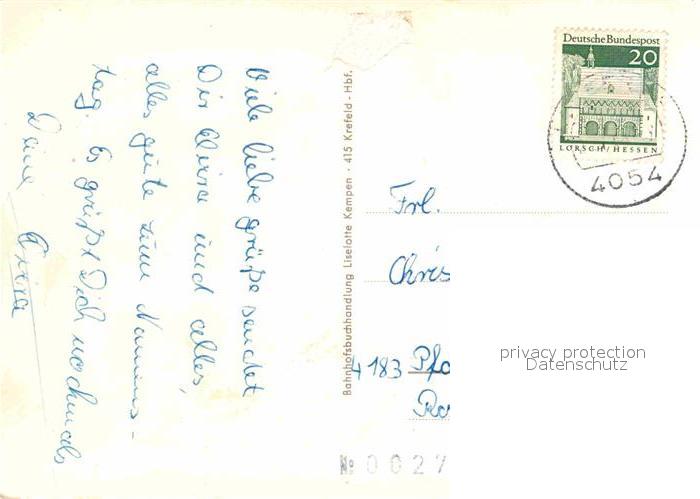 Viele liebe Grüße sendet
Dir Anna und alles,
alles gute zum Namens-
tag. Es grüßt Dich nochmals
Deine Anna
Bahnhofsbuchhandlung Liselotte Kempen · 415 Krefeld - Hbf.
Deutsche Bundespost
20
LORSCH/HESSEN
4054
Frl.
Chris
4183 Pfa
privacy protection
Datenschutz
№ 0027